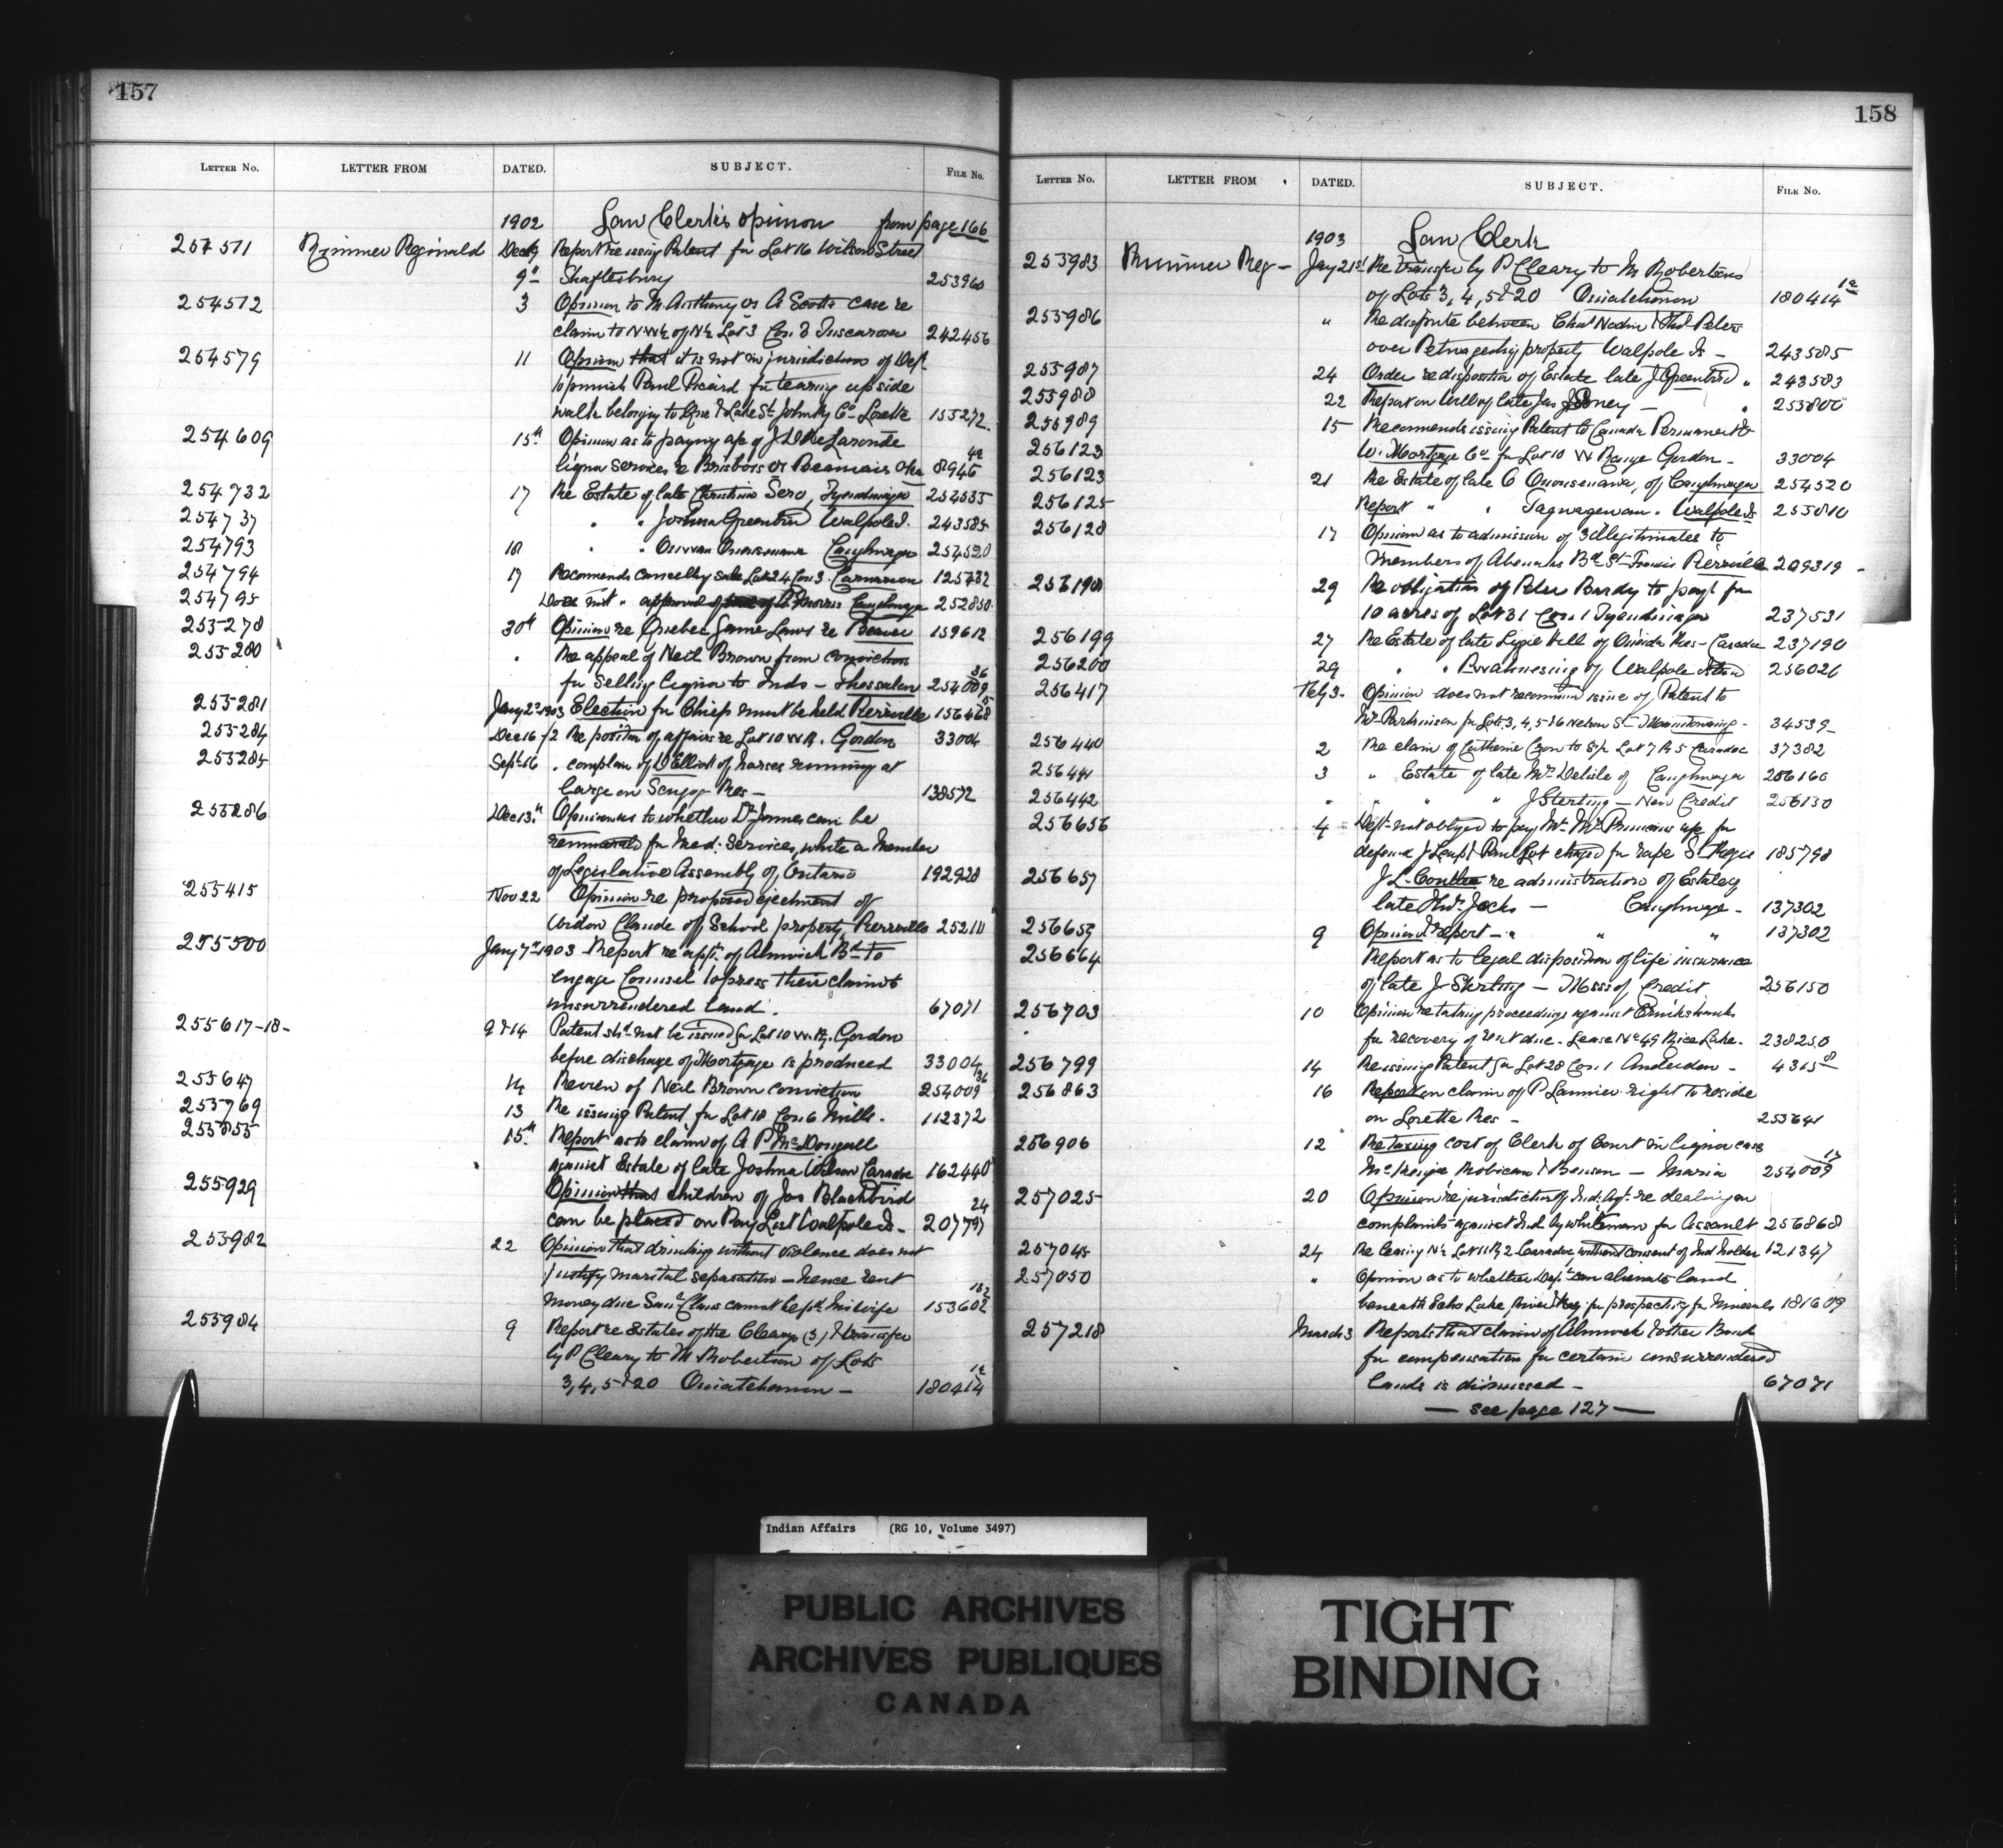 157
LETTER No. LETTER FROM DATED. SUBJECT. FILE No.
1902 Law Clerk's Opinion from page 166
254511 Rimmer Reginald Dec 9 Report re issuing Patent for Lot 16 Wilson Street
9" Shaftesbury 253960
254512 3 Opinion to Mr Anthony or A Scotts case re
claim to NW¼ of N½ Lot 3 Con. 3 Tuscarora 242456
254579 11 Opinion that it is not in jurisdiction of Dept
to punish Paul Picard for tearing up side
walk belonging to Que & Lake St John Ry Co - Lorette 155272
254609 15th Opinion as to paying a/c of J L De Laronde
liquor services re Brisbois or Beauvais Oka 8946
254732 17 Re Estate of late Christina Sero, Tyendinaga 254535
254737 " " Joshua Greenbird Walpole I. 243585
254793 18 " " Caughnawaga 254520
254794 17 Recomends cancelling sale Lot 24 Con 3 Carnarvon 125732
254795 Does not " approval of of A. Morris Caughnawaga 252850
255278 30th Opinion re Quebec Game Laws re Beaver 159612
255280 " Re appeal of Neil Brown from conviction
for selling liquor to Inds - Thessalon 254009 36
255281 Jany 2nd 1903 Election for Chiefs must be held Pierreville 156468
255284 Dec 16/2 Re position of affairs re Lot 10 W R. Gordon 33004
255285 Sept 16 " complain of D Elliott of horses running at
large on Scugog Res - 138572
255286 Dec 13th Opinion as to whether Dr Jones can be
for Med: Services, while a Member
of Legislative Assembly of Ontario 192928
255415 Nov 22 Opinion re proposed ejectment of
Widow Claude off School property, Pierreville 252111
255500 Jany 7th 1903 Report re appt. of Alnwick Bd to
engage Counsel to press their claim to
unsurrendered land. 67071
255617-18- 9 & 14 Patent shd not be issued for Lot 10 W.R. Gordon
before discharge of Mortgage is produced 33004
255647 14 Review of Neil Brown conviction 254009 36
255769 13 Re issuing Patent for Lot 18 Con 6 Mills. 112372
255855 15th Report as to claim of A P McDougall
against Estate of late Joshua Wilson Caradoc 162440
255929 Opinion that children of Jas Blackbird
can be placed on Pay List Walpole I. 207797 24
255982 22 Opinion that drinking without violence does not
justify marital separation - hence rent
money due Saml Claus cannot be pd. his wife 153602 182
255984 9 Report re Estates of the Cleary (3) & transfer
by P Cleary to M. Robertson of Lots
3, 4, 5 & 20 Ouiatchouan - 180414 12
158
LETTER No. LETTER FROM DATED. SUBJECT. FILE No.
1903 Law Clerk
255983 Rimmer Reg - Jany 21st Re transfer by P Cleary to M Robertson
of Lots 3, 4, 5 & 20 Ouiatchouan 180414 12
255986 " Re dispute between Chas Nodin & Thos Peters
over property Walpole Is - 243585
255987 24 Order re disposition of Estate late J Greenbird " 243583
255988 22 Report on Will of late Jas - " 255800
255989 15 Recomends issuing Patent to Canada Permanent &
256123 W. Mortgage Co for Lot 10 W Range Gordon - 33004
256123 21 Re Estate of late of Caughnawaga 254520
256125 Report " " Tagwagewan " Walpole Is 255810
256128 17 Opinion as to admission of 3 Illegitimates to
Members of Abenakis Bd St Francis Pierreville 209319 -
256198 29 Re obligation of Peter Bardy to pay for
10 acres of Lot 31 Con. 1 Tyendinaga 237531
256199 27 Re Estate of late Lizzie Hill of Oneida Res - Caradoc 237190
256200 29 " " of Walpole Island 256026
256417 Feby 3 Opinion does not recommend issue of Patent to
Mr Parkinson for Lots 3, 4, 5 & 6 Nelson St Manitowaning - 34539
256440 2 Re claim of Catherine to S½ Lot 7 R 5 Caradoc 37382
256441 3 " Estate of late Mrs Delisle of Caughnawaga 256160
256442 " " " " J Sterling - New Credit 256150
256656 4 Dept not obliged to pay Mr a/c for
defend J Leaf & Paul charged for rape St Regis 185798
256657 J L. re administration of Estate of
late Thos. Jocks - Caughnawaga - 137302
256659 9 Opinion & report - " " " 137302
256664 Report as to legal disposition of life insurance
of late J Sterling - Missi of Credit 256150
256703 10 Opinion re taking proceedings against Cruikshank
for recovery of rent due - Lease No 49 Rice Lake - 238250
256799 14 Re issuing Patent for Lot 28 Con. 1 Anderdon - 4315
256863 16 Report on claim of P Lannier right to reside
on Lorette Res - 255641
256906 12 Re taxing cost of Clerk of Court in liquor case
McKenzie Mobican & Benson - Maria 254009 17
257025 20 Opinion re jurisdiction of Ind: Agt. re dealing on
complaints against Ind by whiteman for Assault 256868
257045 24 Re leasing N½ Lot 11 R 2 Caradoc without consent of Ind Holder 121347
257050 " Opinion as to whether Dept can alienate land
beneath Echo Lake, River & Bay for prospecting for Minerals 181609
257218 March 3 Reports that claim of Alnwick & other Bands
for compensation for certain unsurrendered
lands is dismissed - 67071
- see page 127 -
Indian Affairs (RG 10, Volume 3497)
PUBLIC ARCHIVES
ARCHIVES PUBLIQUES
CANADA
TIGHT
BINDING